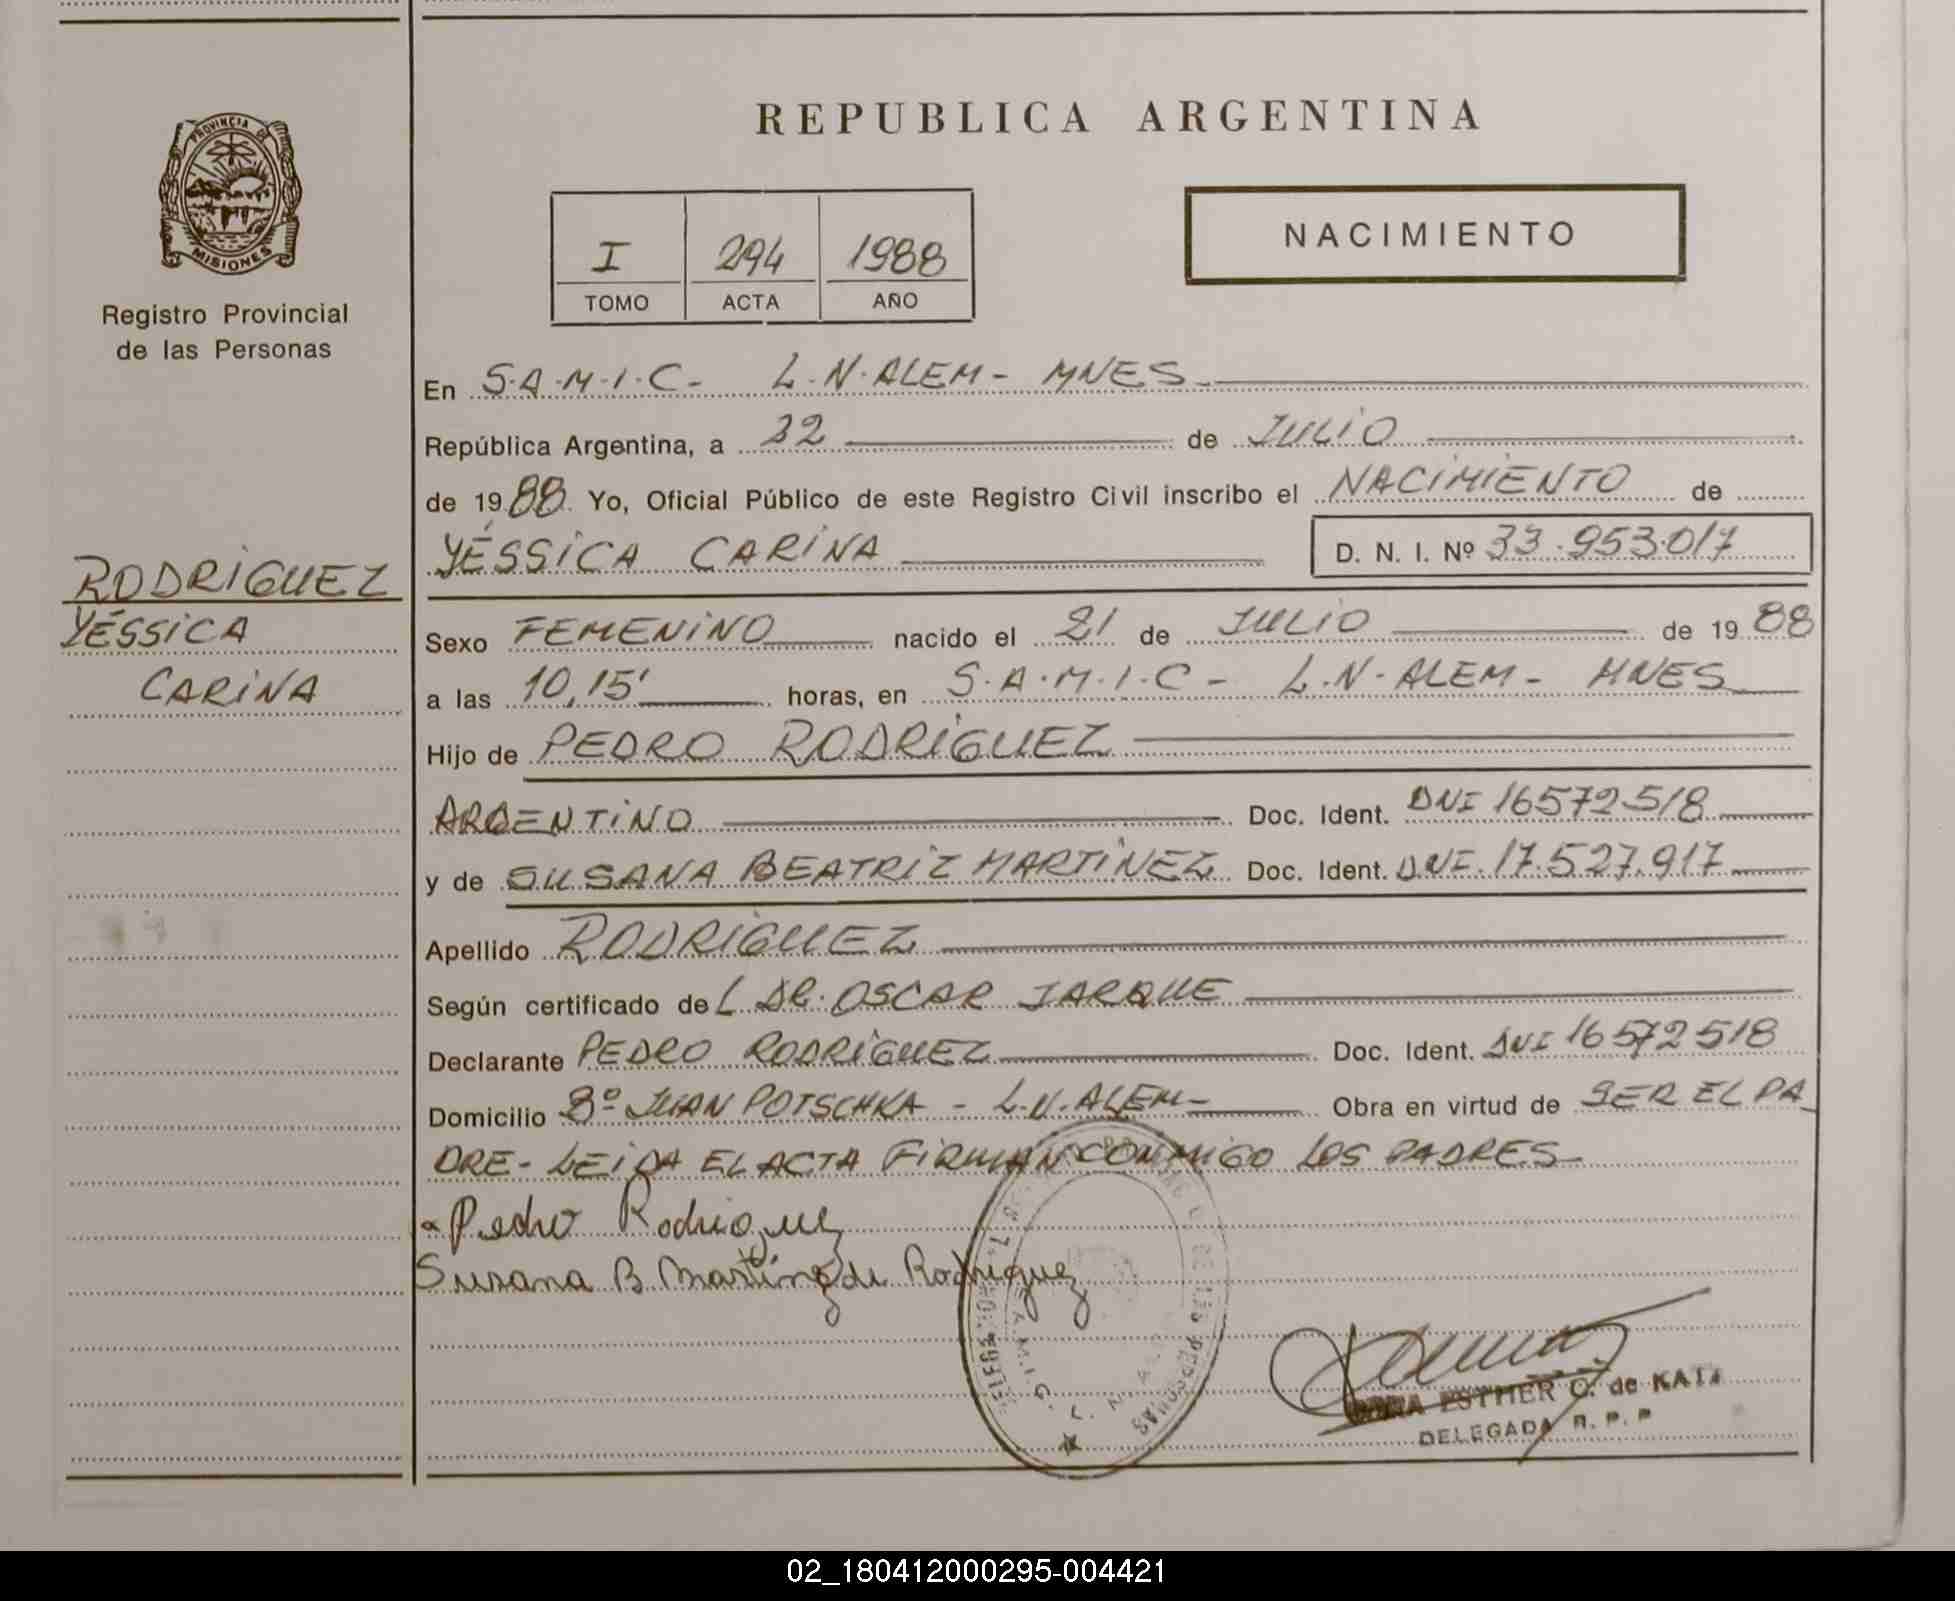 PROVINCIA DE
MISIONES
Registro Provincial
de las Personas
RODRIGUEZ
YÉSSICA
CARINA
REPUBLICA ARGENTINA
I 294 1988
TOMO ACTA AÑO
NACIMIENTO
En S.A.M.I.C- L.N.ALEM- MNES
República Argentina, a 22 de JULIO
de 1988 Yo, Oficial Público de este Registro Civil inscribo el NACIMIENTO de
YÉSSICA CARINA D. N. I. Nº 33.953.017
Sexo FEMENINO nacido el 21 de JULIO de 1988
a las 10,15' horas, en S.A.M.I.C- L.N-ALEM- MNES
Hijo de PEDRO RODRIGUEZ
ARGENTINO Doc. Ident. DNI 16572518
y de SUSANA BEATRIZ MARTINEZ Doc. Ident. DNI.17.527.917
Apellido RODRIGUEZ
Según certificado del DR. OSCAR JARQUE
Declarante PEDRO RODRIGUEZ Doc. Ident. DNI 16572518
Domicilio Bº JUAN POTSCHKA - L.N.ALEM- Obra en virtud de SER EL PA
DRE- LEIDA EL ACTA FIRMAN CONMIGO LOS PADRES
Pedro Rodriguez
Susana B Martinez de Rodriguez
ESTHER O. de
DELEGADA R. P. P
02_180412000295-004421